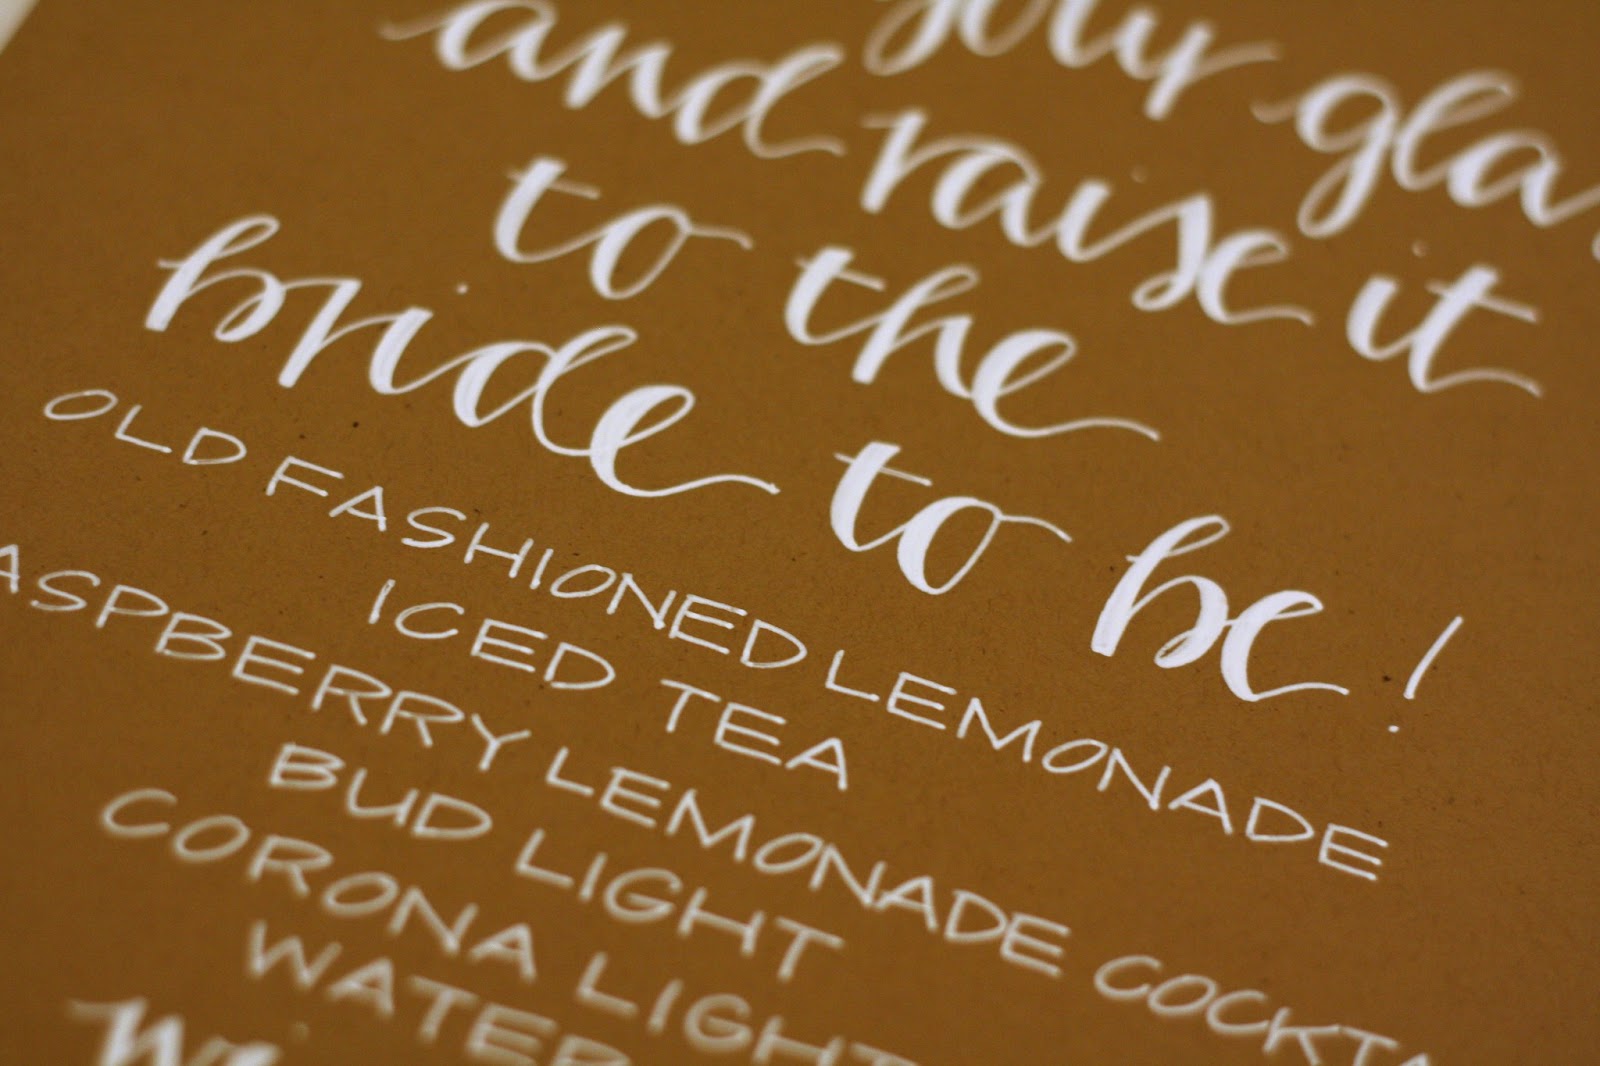 gla
and raise it
to the
bride to be!
OLD FASHIONED LEMONADE
ICED TEA
ASPBERRY LEMONADE COCKTA
BUD LIGHT
CORONA LIGHT
WATER